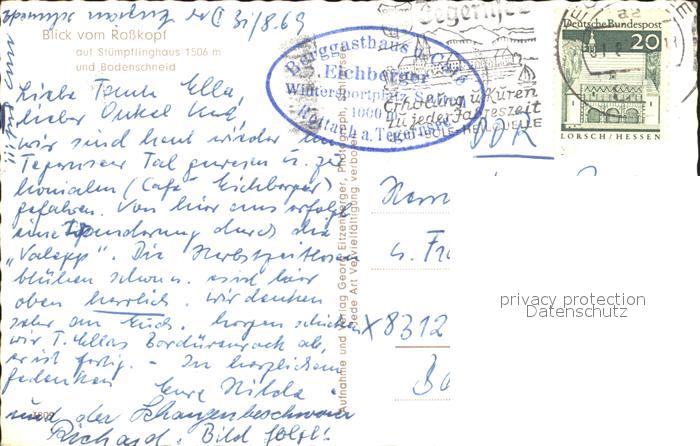 D. 31/8.69
Blick vom Roßkopf
auf Stümpflinghaus 1506 m
und Bodenschneid
Liebe Tante Ella,
lieber Onkel
wir sind heut wieder im
Tegernseer Tal gewesen u. zu
(Café Eichberger)
gefahren. Von hier aus erfolgt
eine Wanderung durch die
"Valepp". Die Herbstzeitlosen
blühen schon u. sind hier
oben herrlich. Wir denken
sehr an Euch. Morgen schicken
wir T. Ellas Bordürenrock ab,
er ist fertig. - In herzlichem
Gedenken Eure Hilda
und der Schlangenbeschwörer
Richard. Bild folgt!
Berggasthaus u. Café
Eichberger
Wintersportplatz Sutten
1000
Rottach a. Tegernsee
Tegernsee
Erholung u. Kuren
zu jeder Jahreszeit
Deutsche Bundespost
20
LORSCH / HESSEN
DDR
Aufnahme und Verlag Georg Eitzenberger,
Jede Art Vervielfältigung verboten
Herrn
u. Fr
X 8312
privacy protection
Datenschutz